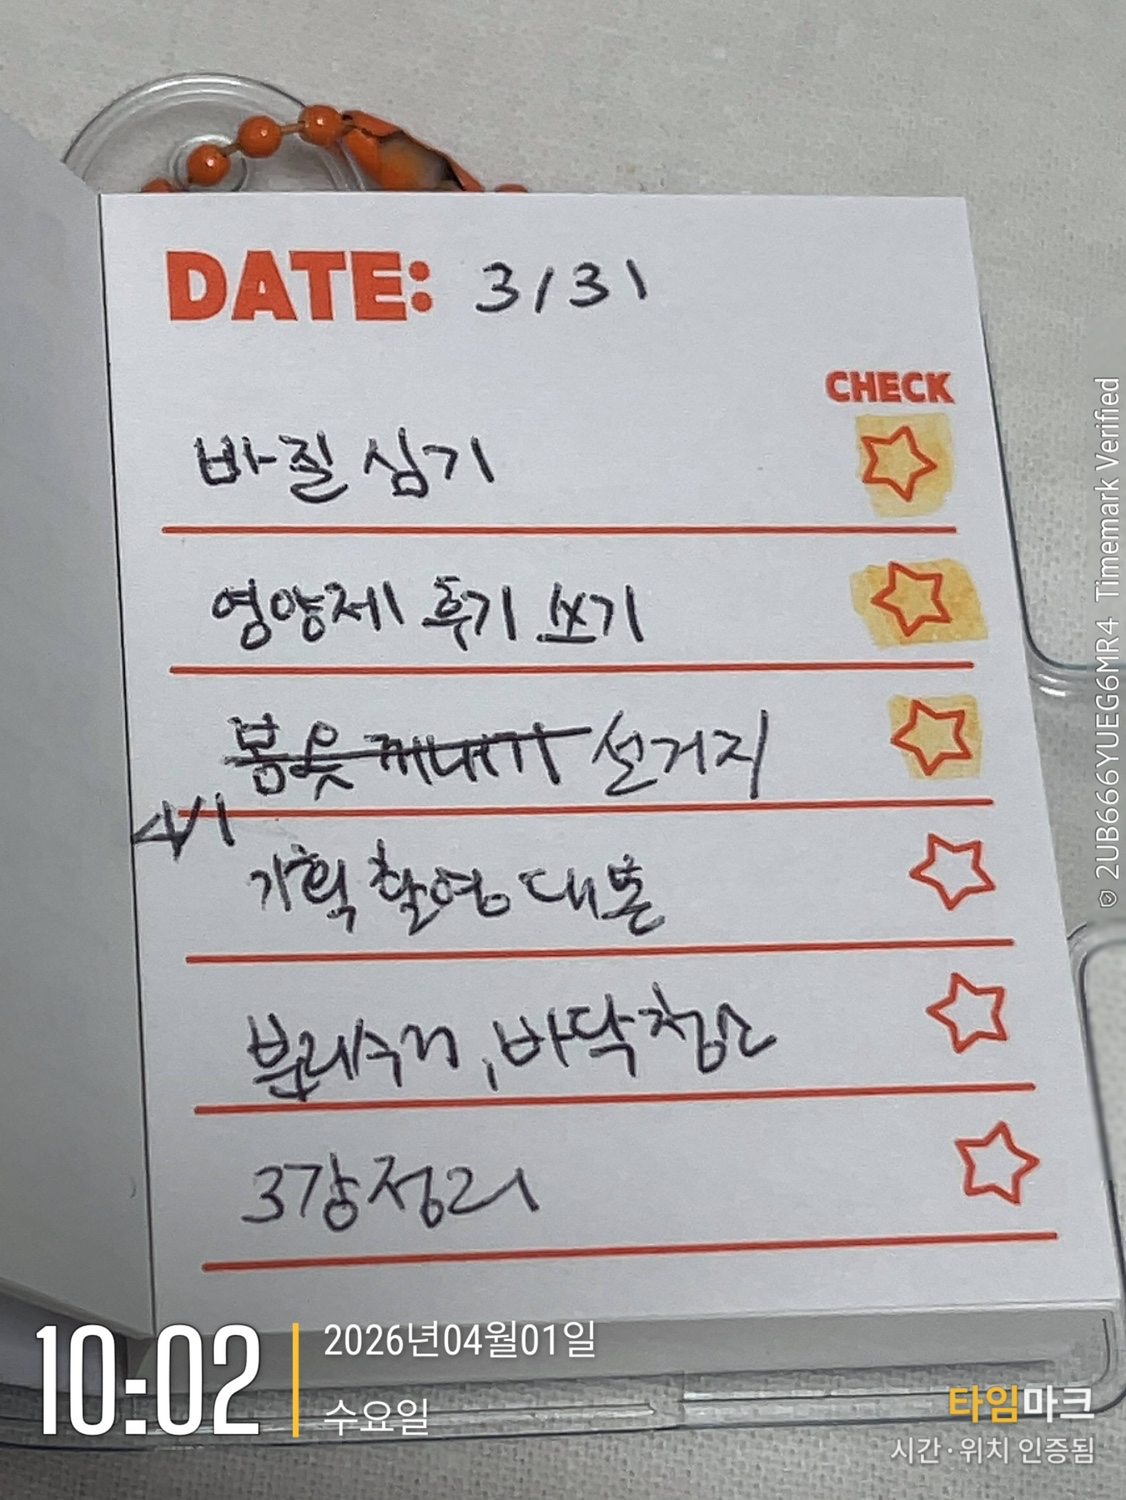 DATE: 3/31
CHECK
바질 심기
영양제 후기 쓰기
봄옷 꺼내기 설거지
4/1
기획 촬영 대본
분리수거, 바닥청소
3강 정리
10:02
2026년04월01일
수요일
타임마크
시간·위치 인증됨
© 2UB666YUEG6MR4 Timemark Verified